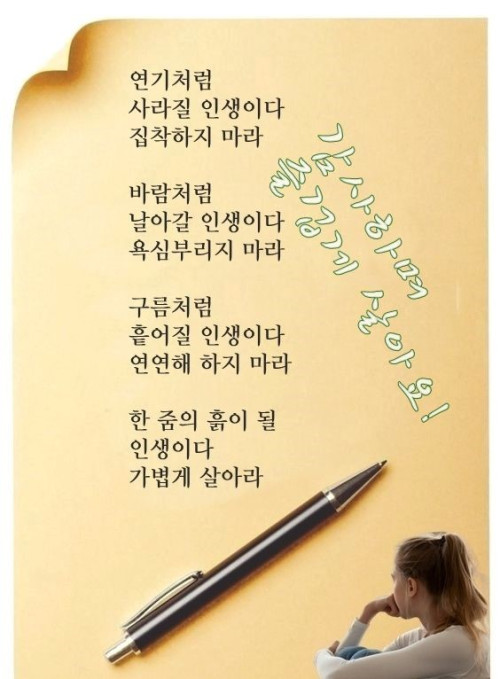 연기처럼
사라질 인생이다
집착하지 마라
바람처럼
날아갈 인생이다
욕심부리지 마라
구름처럼
흩어질 인생이다
연연해 하지 마라
한 줌의 흙이 될
인생이다
가볍게 살아라
감사하며
즐겁게 살아요!